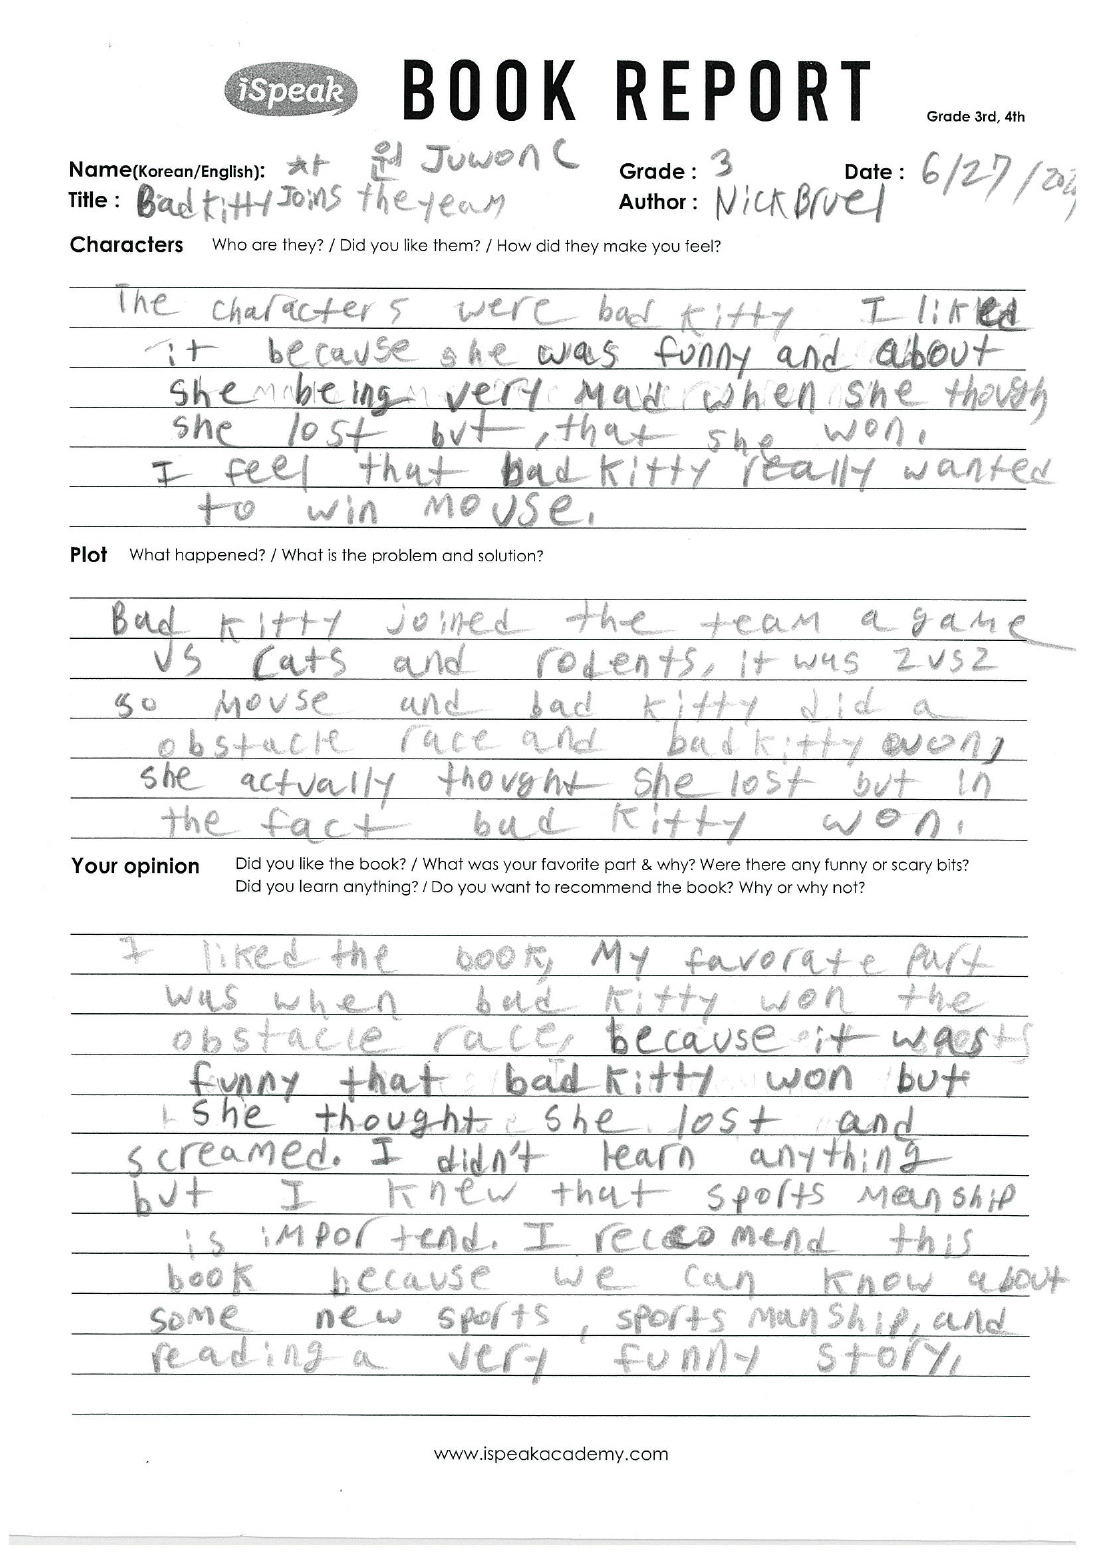 iSpeak BOOK REPORT
Grade 3rd, 4th
Name(Korean/English): Juwon C Grade : 3 Date : 6/27/202
Title : Bad Kitty Joins the team Author : Nick Bruel
Characters Who are they? / Did you like them? / How did they make you feel?
The characters were bad kitty I liked
it because she was funny and about
she being very mad when she though
she lost but , that she won.
I feel that bad kitty really wanted
to win mouse.
Plot What happened? / What is the problem and solution?
Bad kitty joined the team a game
vs Cats and rodents, it was 2vs2
so mouse and bad kitty did a
obstacle race and bad kitty won,
she actually thought she lost but in
the fact bad kitty won.
Your opinion Did you like the book? / What was your favorite part & why? Were there any funny or scary bits?
Did you learn anything? / Do you want to recommend the book? Why or why not?
I liked the book, My favorate part
was when bad kitty won the
obstacle race, because it was
funny that bad kitty won but
she thought she lost and
screamed. I didn't learn anything
but I knew that sports manship
is importend. I reccomend this
book because we can know about
some new sports , sports manship, and
reading a very funny story.
www.ispeakacademy.com